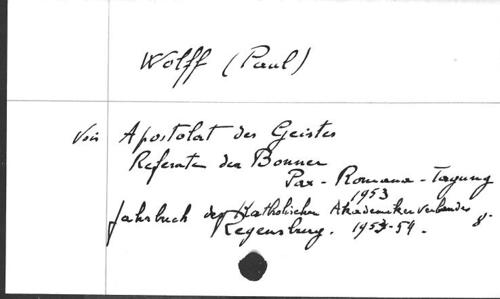 Wolff (Paul)
Voir Apostolat des Geistes
Referate der Bonner
Pax-Romana-Tagung
1953
Jahrbuch des Katholischen Akademikerverbandes
Regensburg. 1953-54.